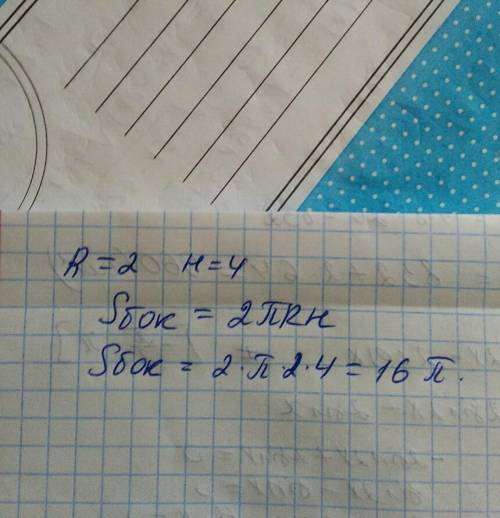 R = 2 H = 4
Sбок = 2πRH
Sбок = 2·π·2·4 = 16 π.